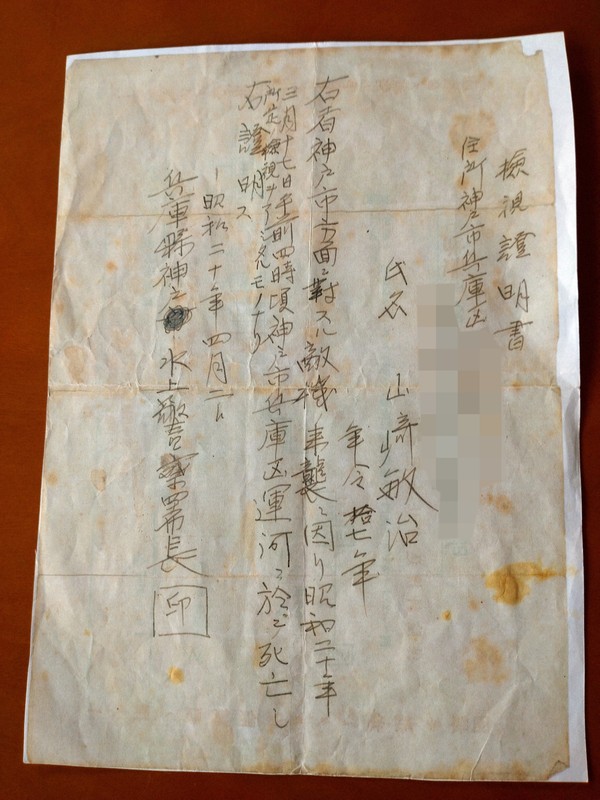 検視證明書
住所神戸市兵庫区
氏名 山﨑敏治
年令拾七年
右者神戸市方面ニ對スル敵機来襲ニ因リ昭和二十年
三月十七日午前四時頃神戸市兵庫区運河ニ於テ死亡シ
所定ノ検視ヲナシタルモノナリ
右證明ス
昭和二十年四月二日
兵庫縣神戸水上警察署長 印